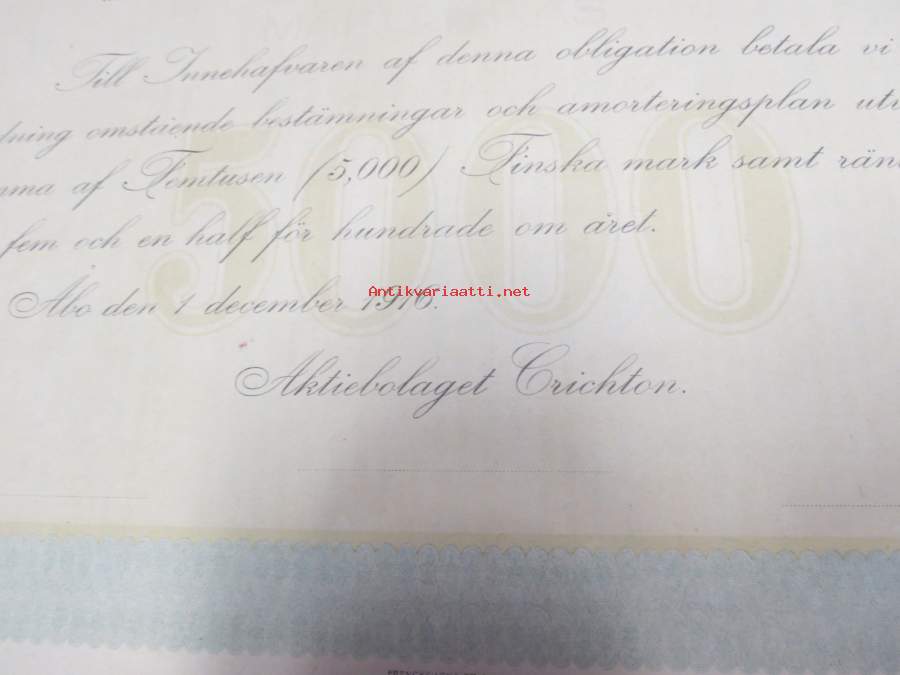 Till Innehafvaren af denna obligation betala vi
dning omstående bestämningar och amorteringsplan utv
mma af Femtusen (5,000) Finska mark samt rän
fem och en half för hundrade om året.
Åbo den 1 december 1916.
Aktiebolaget Crichton.
5000
Antikvariaatti.net